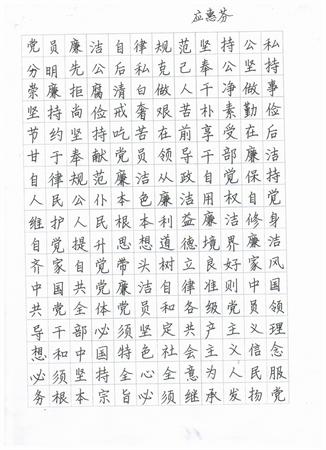 应惠芬
党员廉洁自律规范坚持公私
分明先公后私克己奉公坚持
崇廉拒腐清白做人干净做事
坚持尚俭戒奢艰苦朴素勤俭
节约坚持吃苦在前享受在后
甘于奉献党员领导干部廉洁
自律规范廉洁从政自觉保持
人民公仆本色廉洁用权自觉
维护人民根本利益廉洁修身
自觉提升思想道德境界廉洁
齐家自觉带头树立良好家风
中国共党廉洁自律准则中国
共党全体党员和各级党员领
导干部必须坚定共产主义理
想和中国特色社会主义信念
必须坚持全心全意为人民服
务根本宗旨必须继承发扬党